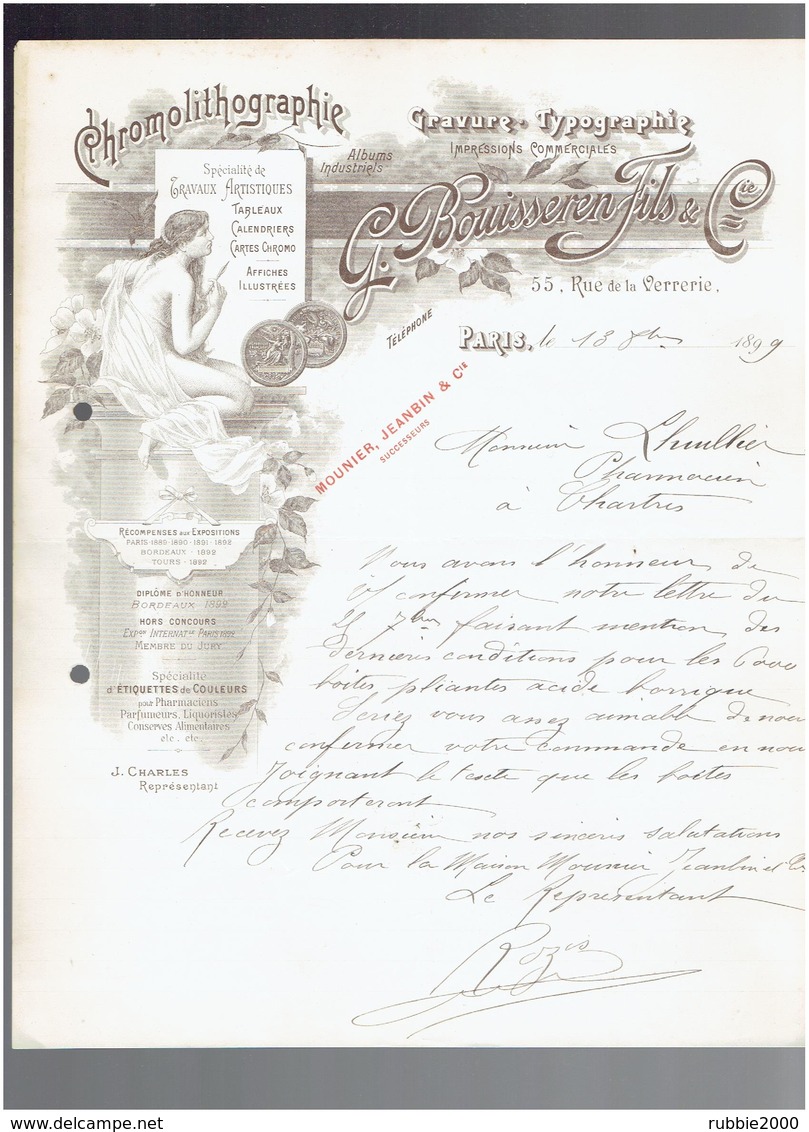 Chromolithographie
Gravure - Typographie
Impressions Commerciales
Albums
Industriels
G. Bouisseren Fils & Cie
55, Rue de la Verrerie,
Spécialité de
Travaux Artistiques
Tableaux
Calendriers
Cartes Chromo
Affiches
Illustrées
Téléphone
Paris, le 13 8bre 1899
MOUNIER, JEANBIN & Cie
SUCCESSEURS
Monsieur Lhuillier
Pharmacien
à Chartres
Nous avons l'honneur de
confermer notre lettre du
25 7bre faisant mention des
dernières conditions pour les 6000
boites pliantes acide borrique
Seriez vous assez aimable de nous
confermer votre commande en nous
Joignant le texte que les boites
comporteront
Recevez Monsieur nos sinceres salutations
Pour la Maison Mounier Jeanbin et Cie
Le Représentant
Récompenses aux Expositions
PARIS · 1889 · 1890 · 1891 · 1892
BORDEAUX · 1892
TOURS · 1892
Diplôme d'Honneur
Bordeaux 1892
Hors Concours
Expon Internatle Paris 1892
Membre du Jury
Spécialité
d'Étiquettes de Couleurs
pour Pharmaciens
Parfumeurs, Liquoristes
Conserves Alimentaires
etc. etc.
J. Charles
Représentant
Delcampe.net
rubbie2000